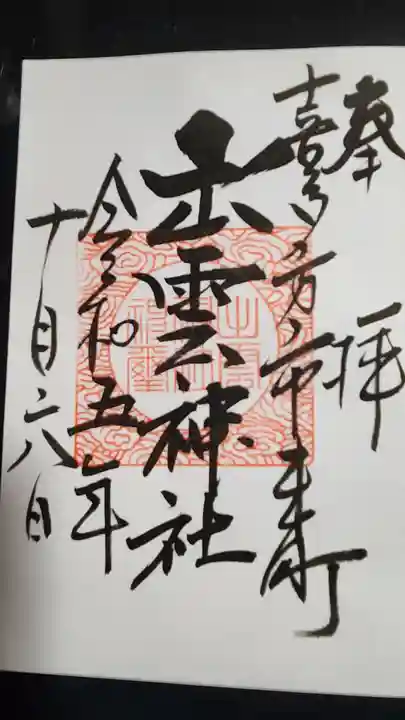 奉拝
喜多方市 町
出雲神社
令和五年
十月 日